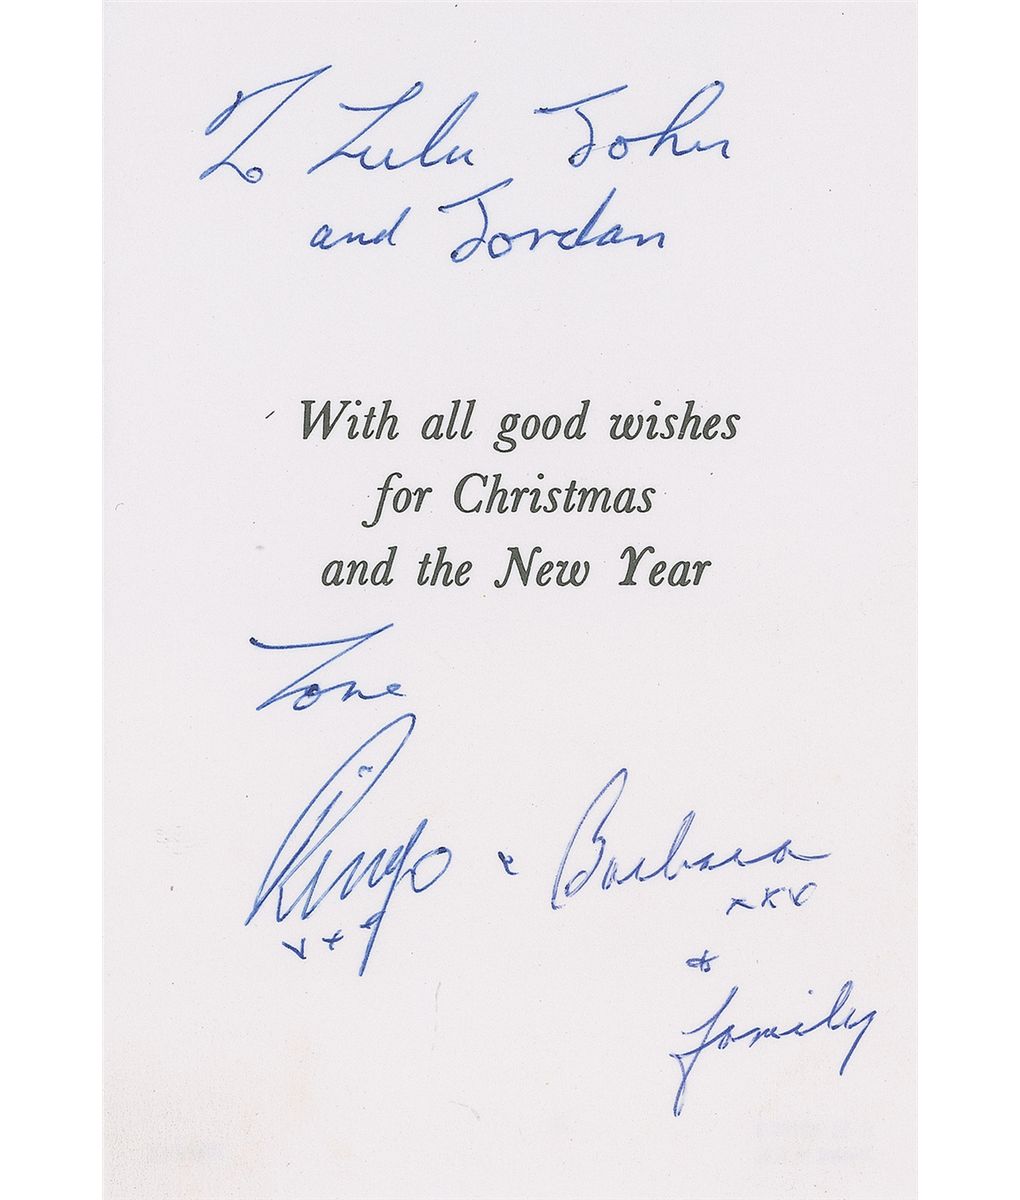 To Lulu John
and Jordan
With all good wishes
for Christmas
and the New Year
Love
Ringo & Barbara
xxx xxx
&
family